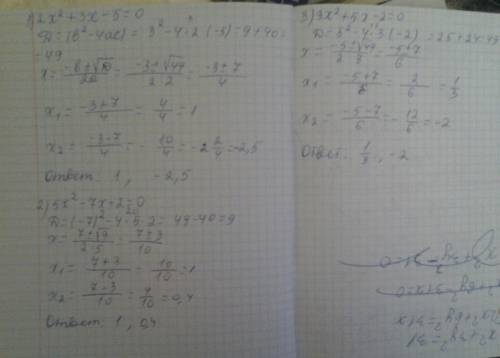 1) 2x² + 3x - 5 = 0
D = (b² - 4ac) = 3² - 4 · 2 · (-5) = 9 + 40 =
= 49
x = (-b ± √D)/2a = (-3 ± √49)/(2 · 2) = (-3 ± 7)/4
x₁ = (-3 + 7)/4 = 4/4 = 1
x₂ = (-3 - 7)/4 = - 10/4 = -2 2/4 = -2,5
Ответ: 1, -2,5
2) 5x² - 7x + 2 = 0
D = (-7)² - 4 · 5 · 2 = 49 - 40 = 9
x = (7 ± √9)/(2 · 5) = (7 ± 3)/10
x₁ = (7 + 3)/10 = 10/10 = 1
x₂ = (7 - 3)/10 = 4/10 = 0,4
Ответ: 1, 0,4
3) 3x² + 5x - 2 = 0
D = 5² - 4 · 3 · (-2) = 25 + 24 = 49
x = (-5 ± √49)/(2 · 3) = (-5 ± 7)/6
x₁ = (-5 + 7)/6 = 2/6 = 1/3
x₂ = (-5 - 7)/6 = - 12/6 = -2
Ответ: 1/3, -2